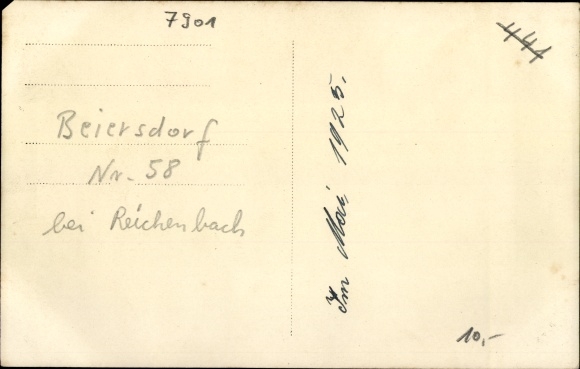 7901
441
Beiersdorf
Nr. 58
bei Reichenbach
Im Mai 1925.
10,-